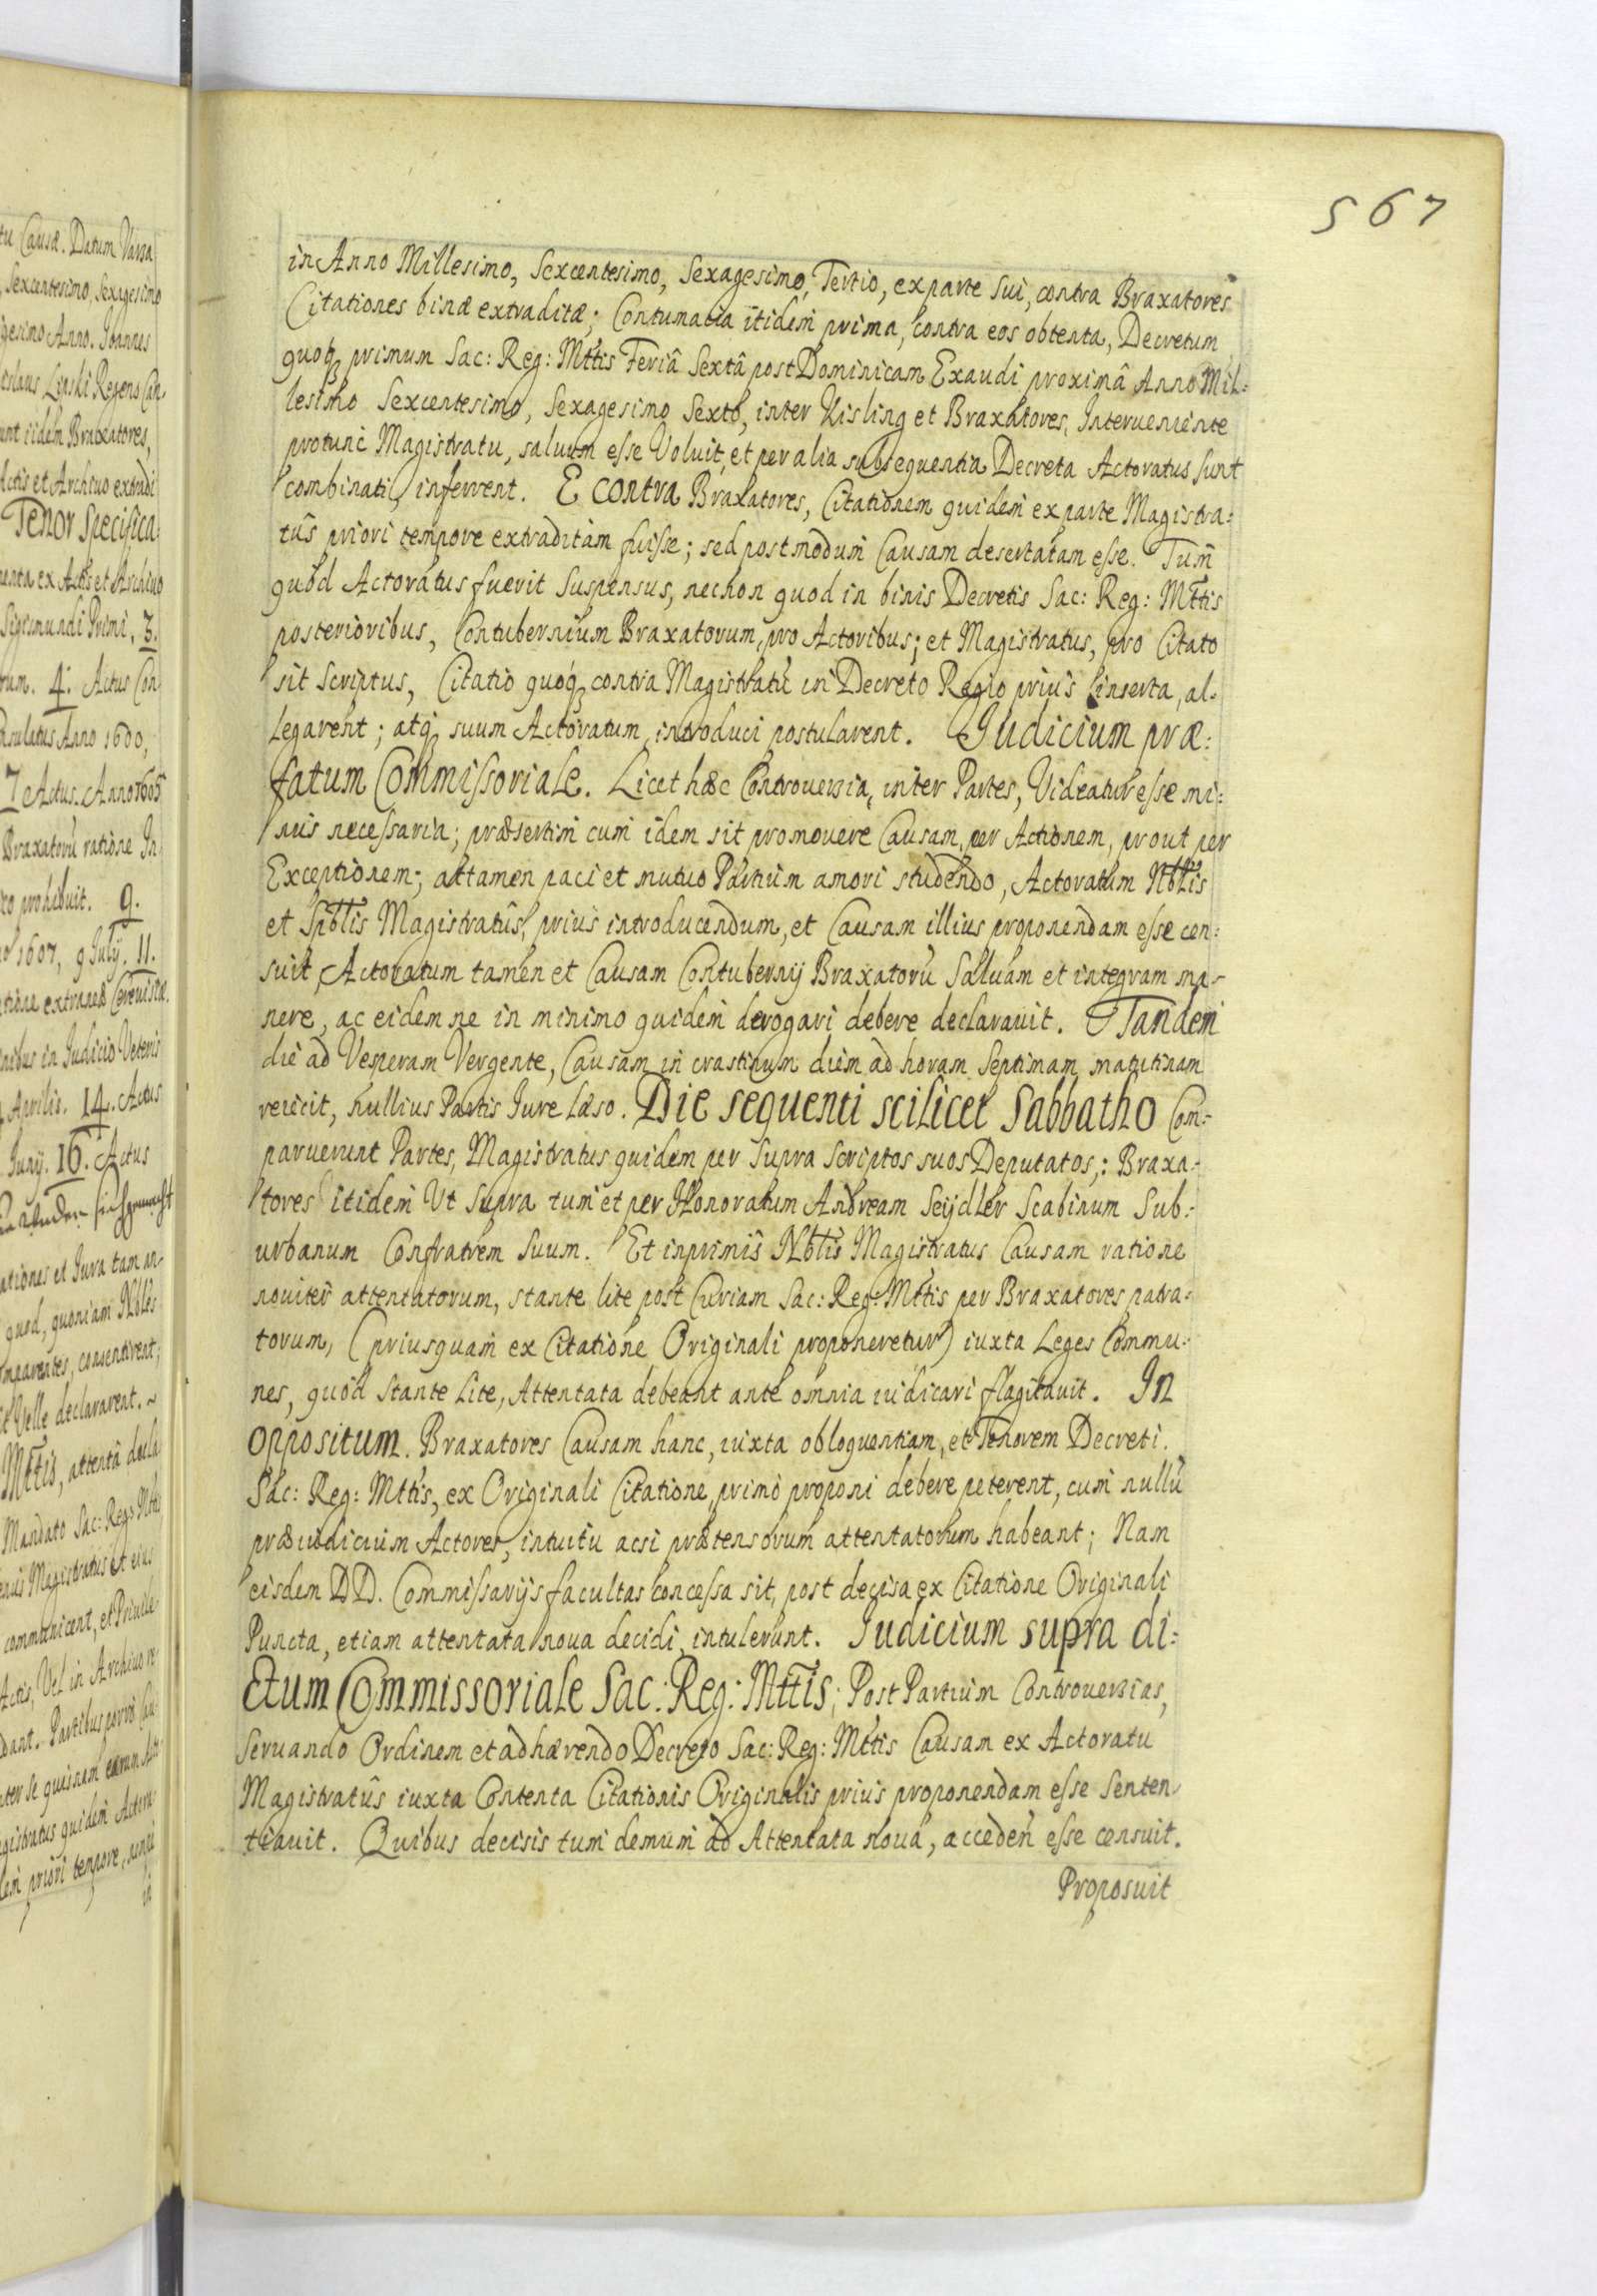 567
in Anno Millesimo, Sexcentesimo, Sexagesimo, Tertio, ex parte Sui, contra Braxatores
Citationes binæ extraditæ; Contumacia itidem prima, contra eos obtenta, Decretum
quoq; primum Sac: Reg: Mttis Feriâ Sextâ post Dominicam Exaudi proximâ Anno Mil=
lesimo Sexcentesimo, Sexagesimo Sexto, inter Kisling et Braxatores, Interueniente
protunc Magistratu, saluum esse Voluit, et per alia subsequentia Decreta Actoratus sunt
combinati, inferrent. E contra Braxatores, Citationem quidem ex parte Magistra=
tûs priori tempore extraditam fuisse; sed postmodum Causam desertatam esse. Tum
quod Actoratus fuerit Suspensus, necnon quod in binis Decretis Sac: Reg: Mttis
posterioribus, Contubernium Braxatorum, pro Actoribus; et Magistratus, pro Citato
sit Scriptus, Citatio quoq; contra Magistratũ in Decreto Regio prius inserta, al=
legarent; atq; suum Actoratum introduci postularent. Judicium præ:
fatum Commissoriale. Licet hæc Controuersia, inter Partes, Videatur esse mi:
nus necessaria; præsertim cum idem sit promouere Causam, per Actionem, prout per
Exceptionem; attamen paci et mutuo Partium amori studendo, Actoratum Nbtis
et Spbtis Magistratûs, prius introducendum, et Causam illius proponendam esse cen:
suit, Actoratum tamen et Causam Contubernij Braxatorũ Saluam et integram ma-
nere, ac eidem ne in minimo quidem derogari debere declarauit. Tandem
die ad Vesperam Vergente, Causam in crastinum diem ad horam Septimam matutinam
reiecit, nullius Partis Jure læso. Die sequenti scilicet Sabbatho Com=
paruerunt Partes, Magistratus quidem per Supra Scriptos suos Deputatos; Braxa=
tores itidem Ut Supra tum et per Honoratum Andream Seijdler Scabinum Sub=
urbanum Confratrem Suum. Et inprimis Nbtis Magistratus Causam ratione
nouiter attentatorum, stante lite post Curiam Sac: Reg: Mttis per Braxatores patra=
torum, (priusquam ex Citatione Originali proponeretur) iuxta Leges Commu=
nes, quod Stante Lite, Attentata debeant ante omnia iudicari flagitauit. In
oppositum. Braxatores Causam hanc, iuxta obloquentiam, et Tenorem Decreti
Sac: Reg: Mttis, ex Originali Citatione, primò proponi debere peterent, cum nullũ
præiudicium Actores, intuitu acsi prætensorum attentatorum habeant; Nam
eisdem DD. Commissarijs facultas concessa sit, post decisa ex Citatione Originali
Puncta, etiam attentata noua decidi, intulerunt. Judicium supra di=
ctum Commissoriale Sac: Reg: Mttis, Post Partium Controuersias,
Seruando Ordinem et adhærendo Decreto Sac: Reg: Mttis Causam ex Actoratu
Magistratûs iuxta Contenta Citationis Originalis prius proponendam esse Senten=
tiauit. Quibus decisis tum demum ad Attentata noua, acceden esse censuit.
Proposuit